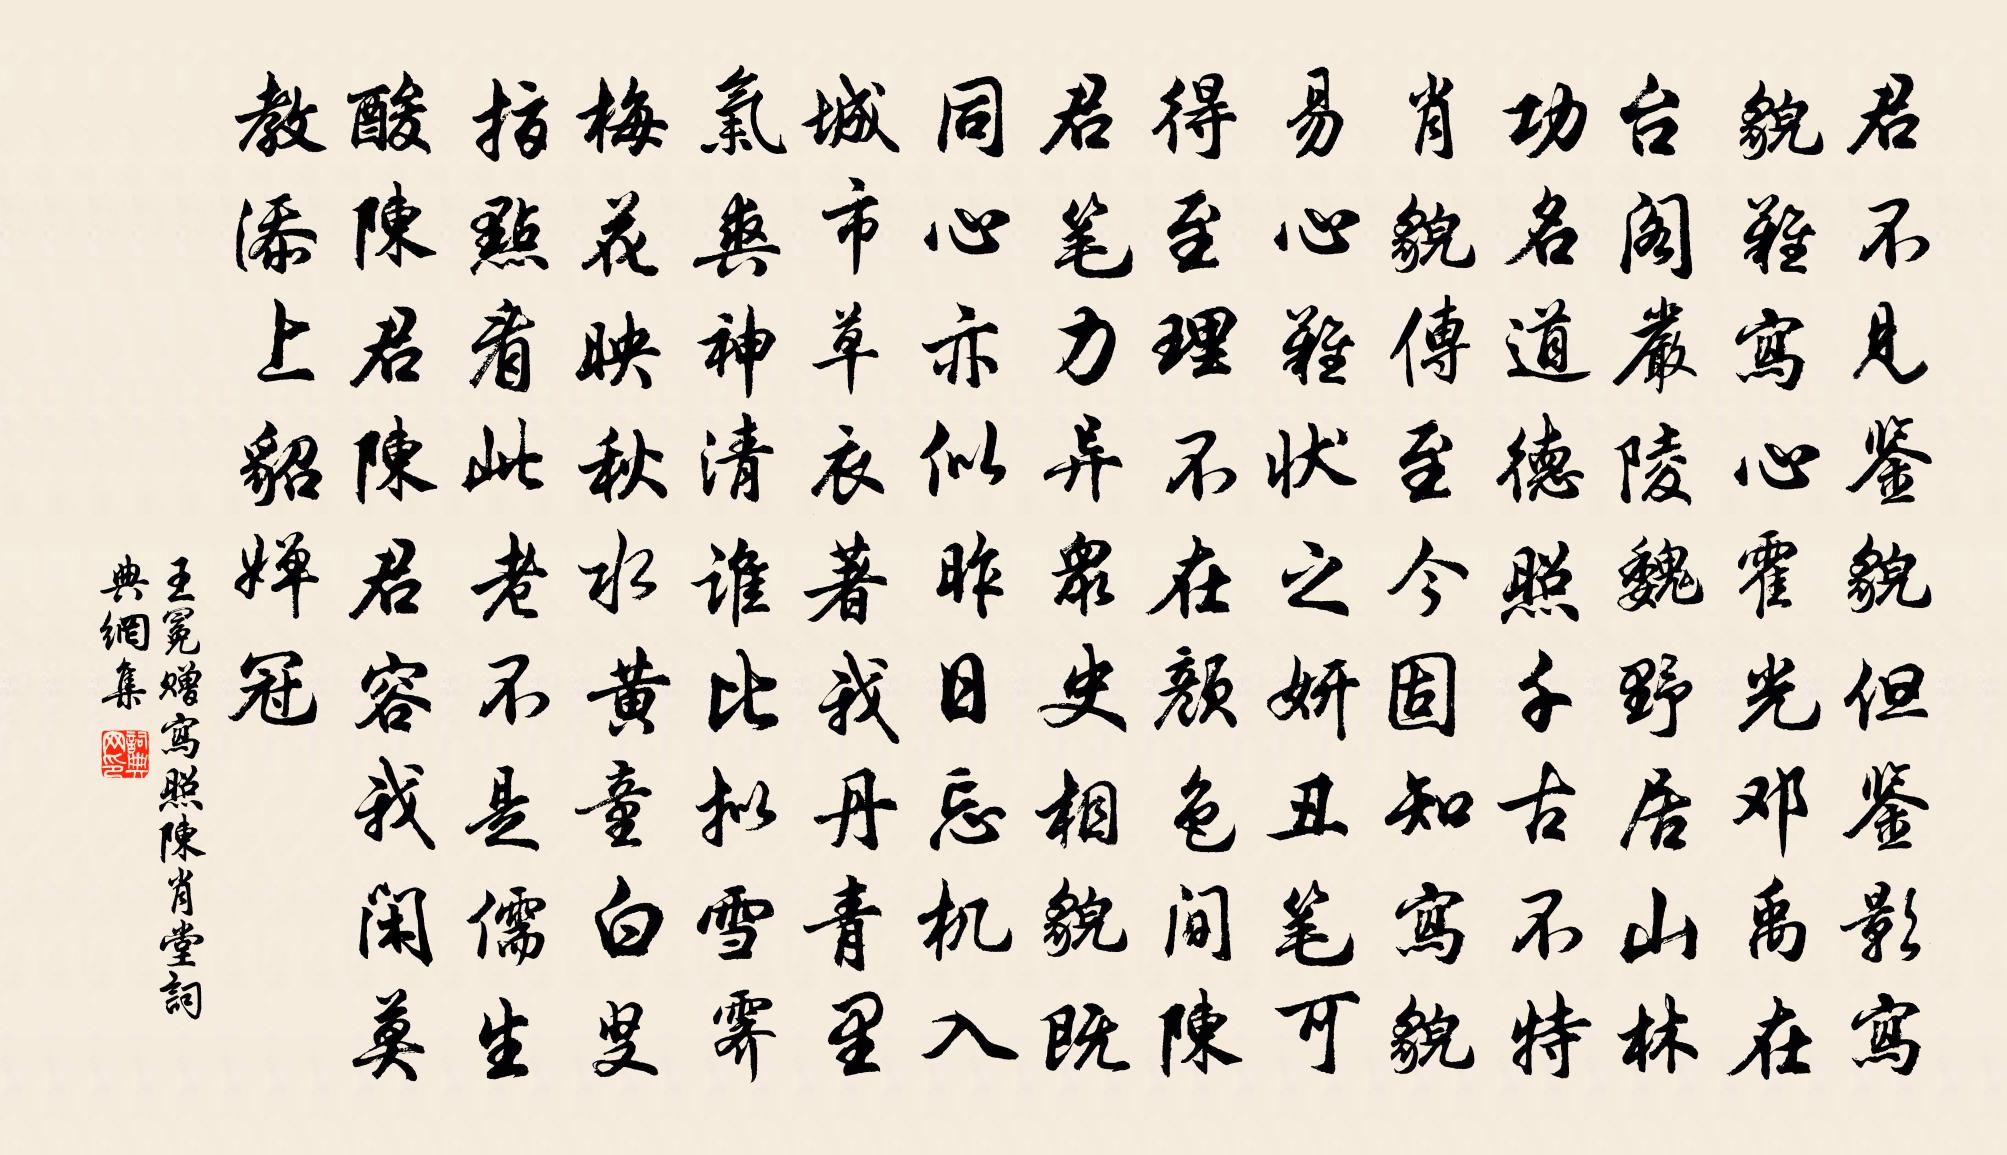 君不見鉴貌但鉴影寫
貌難寫心霍光邓禹在
台阁嚴陵魏野居山林
功名道德照千古不特
肖貌傳至今固知寫貌
易心難状之妍丑笔可
得至理不在颜色间陳
君笔力异眾史相貌既
同心亦似昨日忘机入
城市草衣著我丹青里
氣爽神清谁比拟雪霁
梅花映秋水黄童白叟
指點看此老不是儒生
酸陳君陳君容我闲莫
教添上貂婵冠
王冕赠寫照陳肖堂詞
典網集
詞典网印